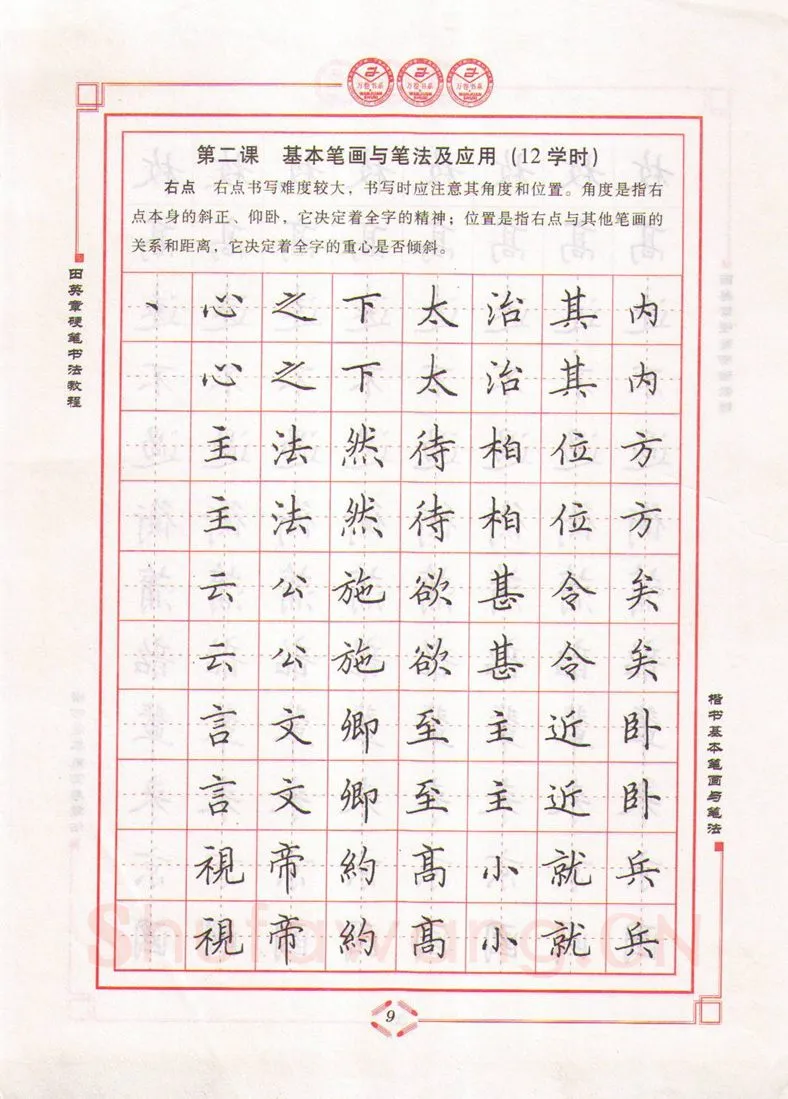 万卷书系 万卷书系 万卷书系
第二课 基本笔画与笔法及应用(12学时)
右点 右点书写难度较大，书写时应注意其角度和位置。角度是指右
点本身的斜正、仰卧，它决定着全字的精神；位置是指右点与其他笔画的
关系和距离，它决定着全字的重心是否倾斜。
田英章硬笔书法教程
丶 心 之 下 太 治 其 内
心 之 下 太 治 其 内
主 法 然 待 柏 位 方
主 法 然 待 柏 位 方
云 公 施 欲 甚 令 矣
云 公 施 欲 甚 令 矣
言 文 卿 至 主 近 卧
言 文 卿 至 主 近 卧
視 帝 約 髙 小 就 兵
視 帝 約 髙 小 就 兵
楷书基本笔画与笔法
Shufawang.CN
9